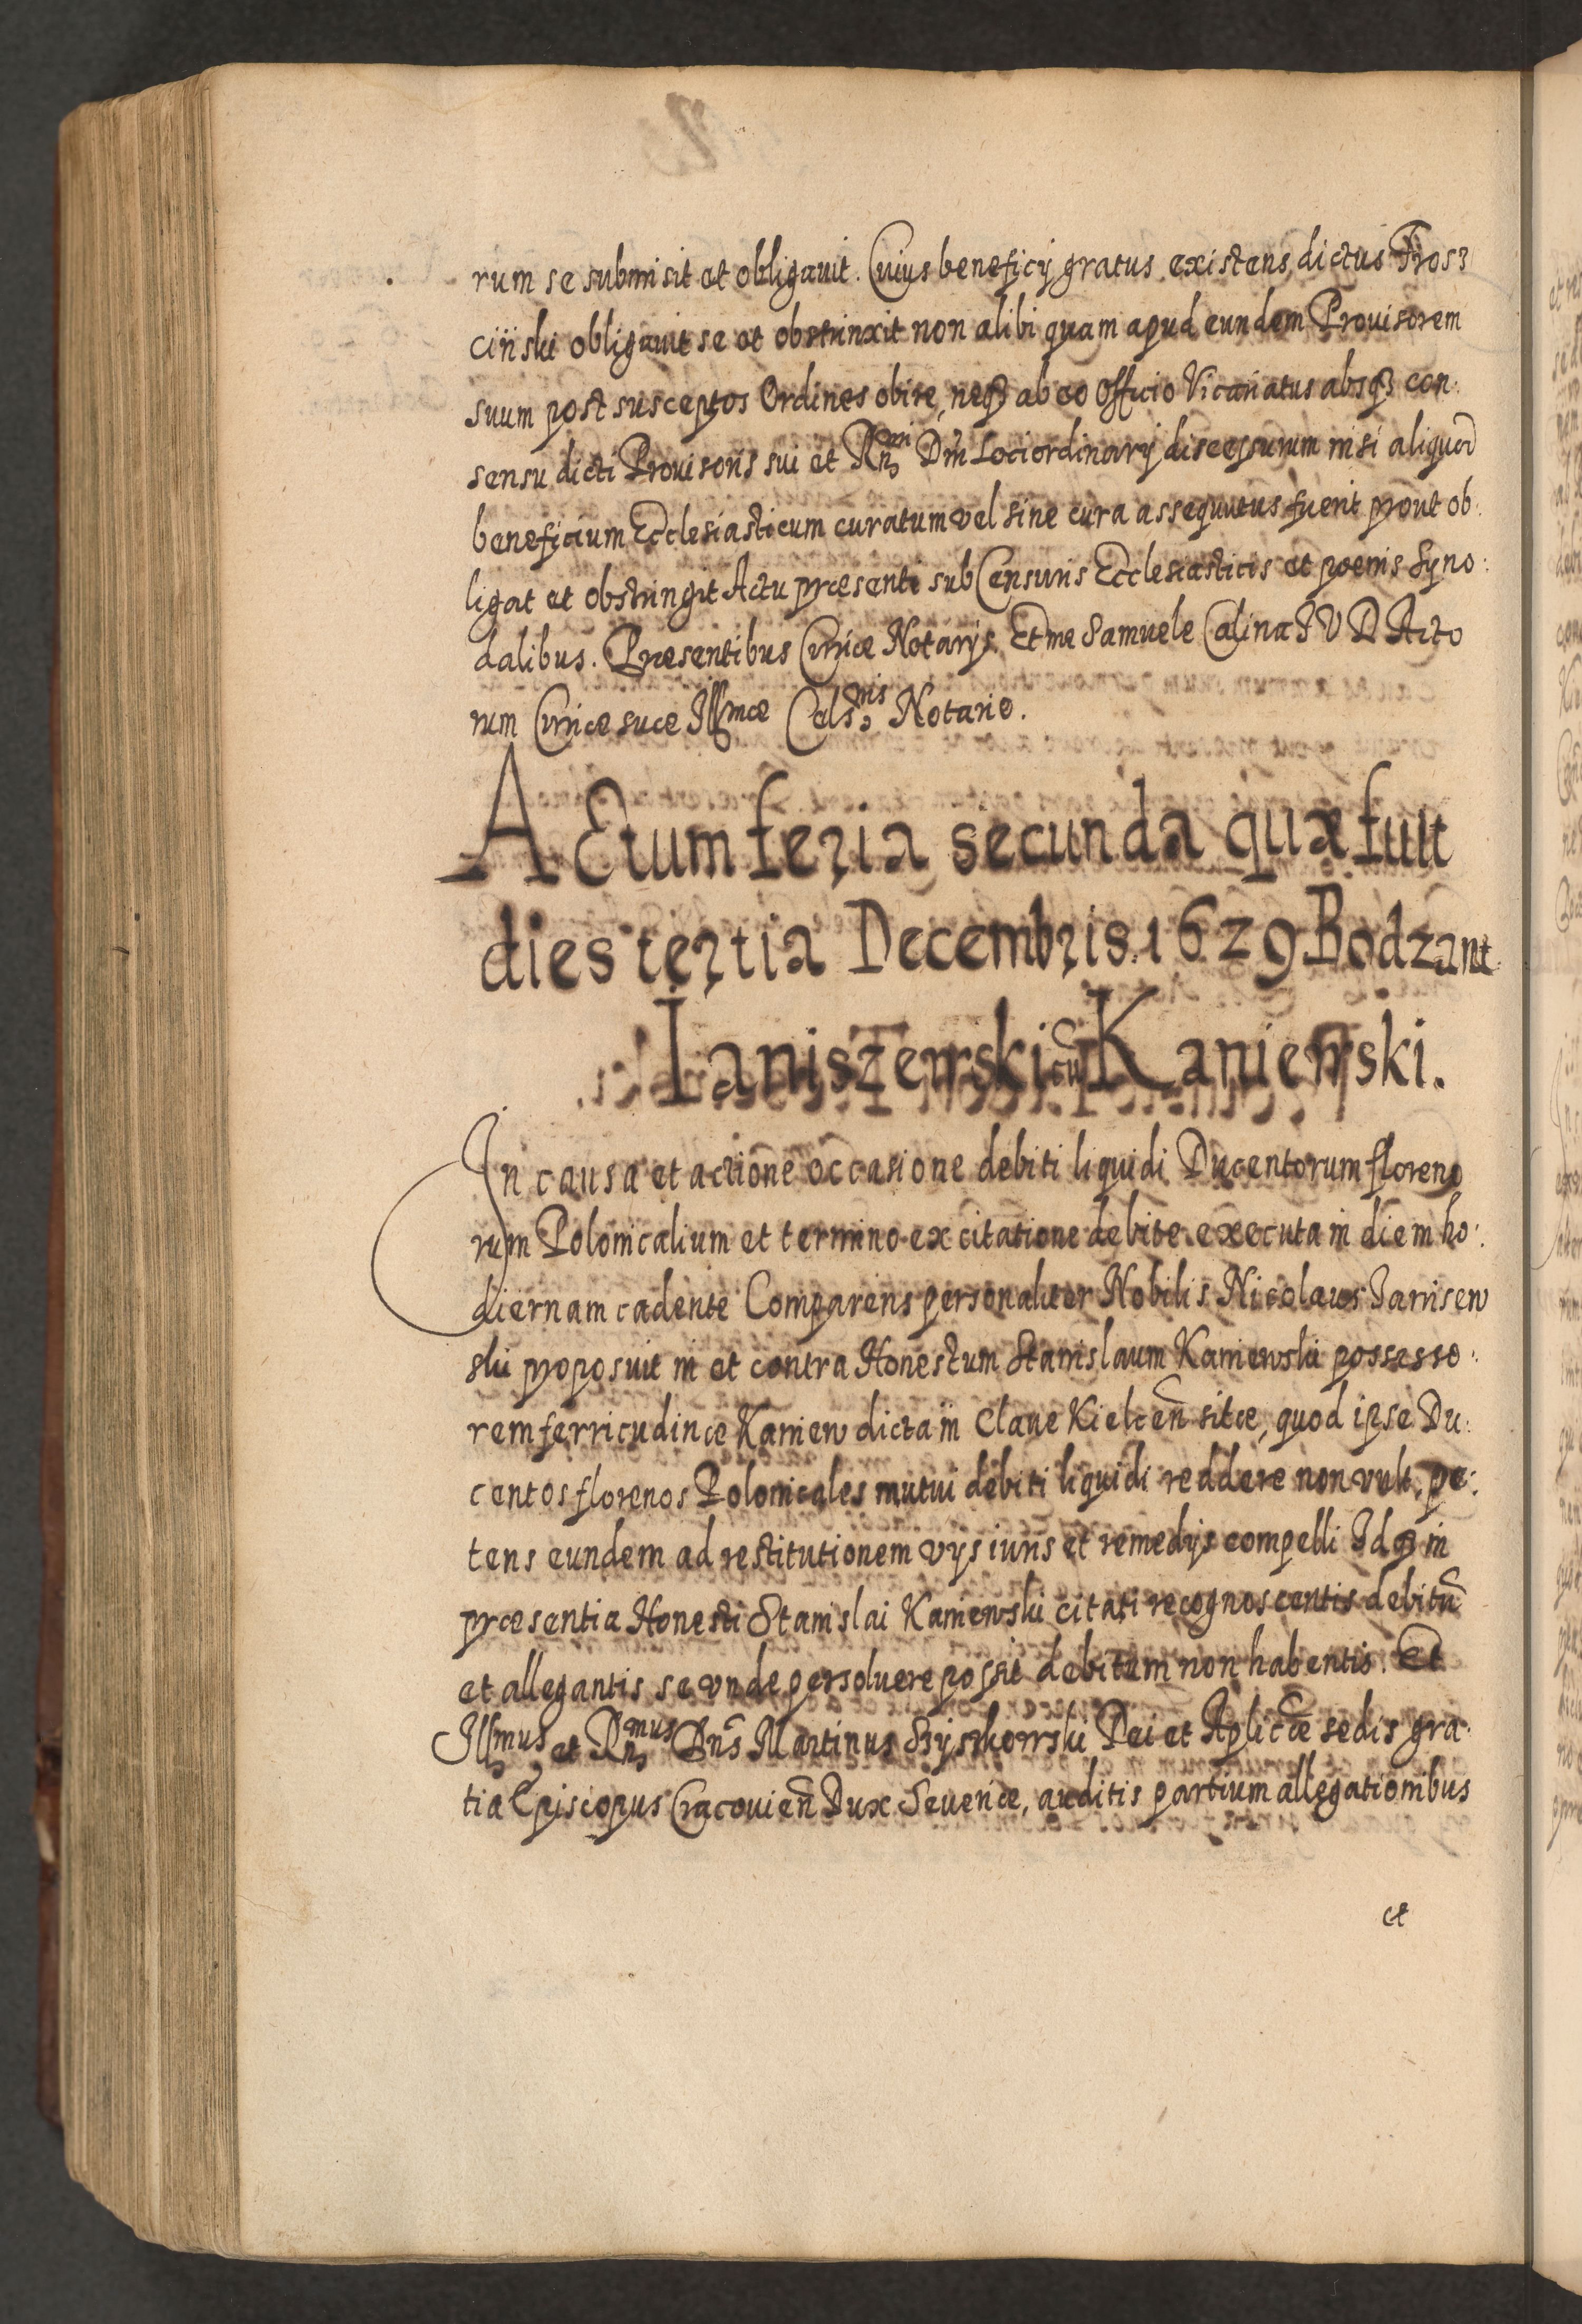 rum se submisit et obligauit. Cuius beneficÿ gratus existens dictus Trosz
ciński obligauit se et obstrinxit non alibi quam apud eundem Prouisorem
suum post susceptos Ordines obire, neqȝ ab eo Officio Vicariatus absqȝ con:
sensu dicti Prouisoris sui et Rn̄ȝmi Dn̄i Lociordinarÿ discessurum nisi aliquod
beneficium Ecclesiasticum curatum vel sine cura assequutus fuerit prout ob:
ligat et obstringit Actu præsenti sub Censuris Ecclesiasticis et poenis Syno:
dalibus. Præsentibus Curiæ Notarÿs. Et me Samuele Calina J V D Acto
rum Curiæ suæ Illmæ Celsnis Notario.
ACtum feria secunda quæ fuit
dies tertia Decembris. 1629 Bodzant:
Ianiszewski cū Kaniewski.
In causa et actione occasione debiti liquidi Ducentorum floreno
rum Polonicalium et termino ex citatione debite executa in diem ho:
diernam cadente Comparens personaliter Nobilis Nicolaus Janisew
ski proposuit in et contra Honestum Stanislaum Kaniewski possesso:
rem ferricudinæ Kaniew dicta in Claue Kielceñ sitæ, quod ipse Du:
centos florenos Polonicales mutui debiti liquidi reddere non vult, pe:
tens eundem ad restitutionem vÿs iuris et remedÿs compelli Idqȝ in
præsentia Honesti Stanislai Kaniewski citati recognoscentis debitū
et allegantis se vnde persoluere possit debitum non habentis. Et
Illmus et Rn̄ȝmus Dn̄s Martinus Szyszkowski Dei et Aplicæ sedis gra:
tia Episcopus Cracouieñ Dux Seueriæ, auditis partium allegationibus
et